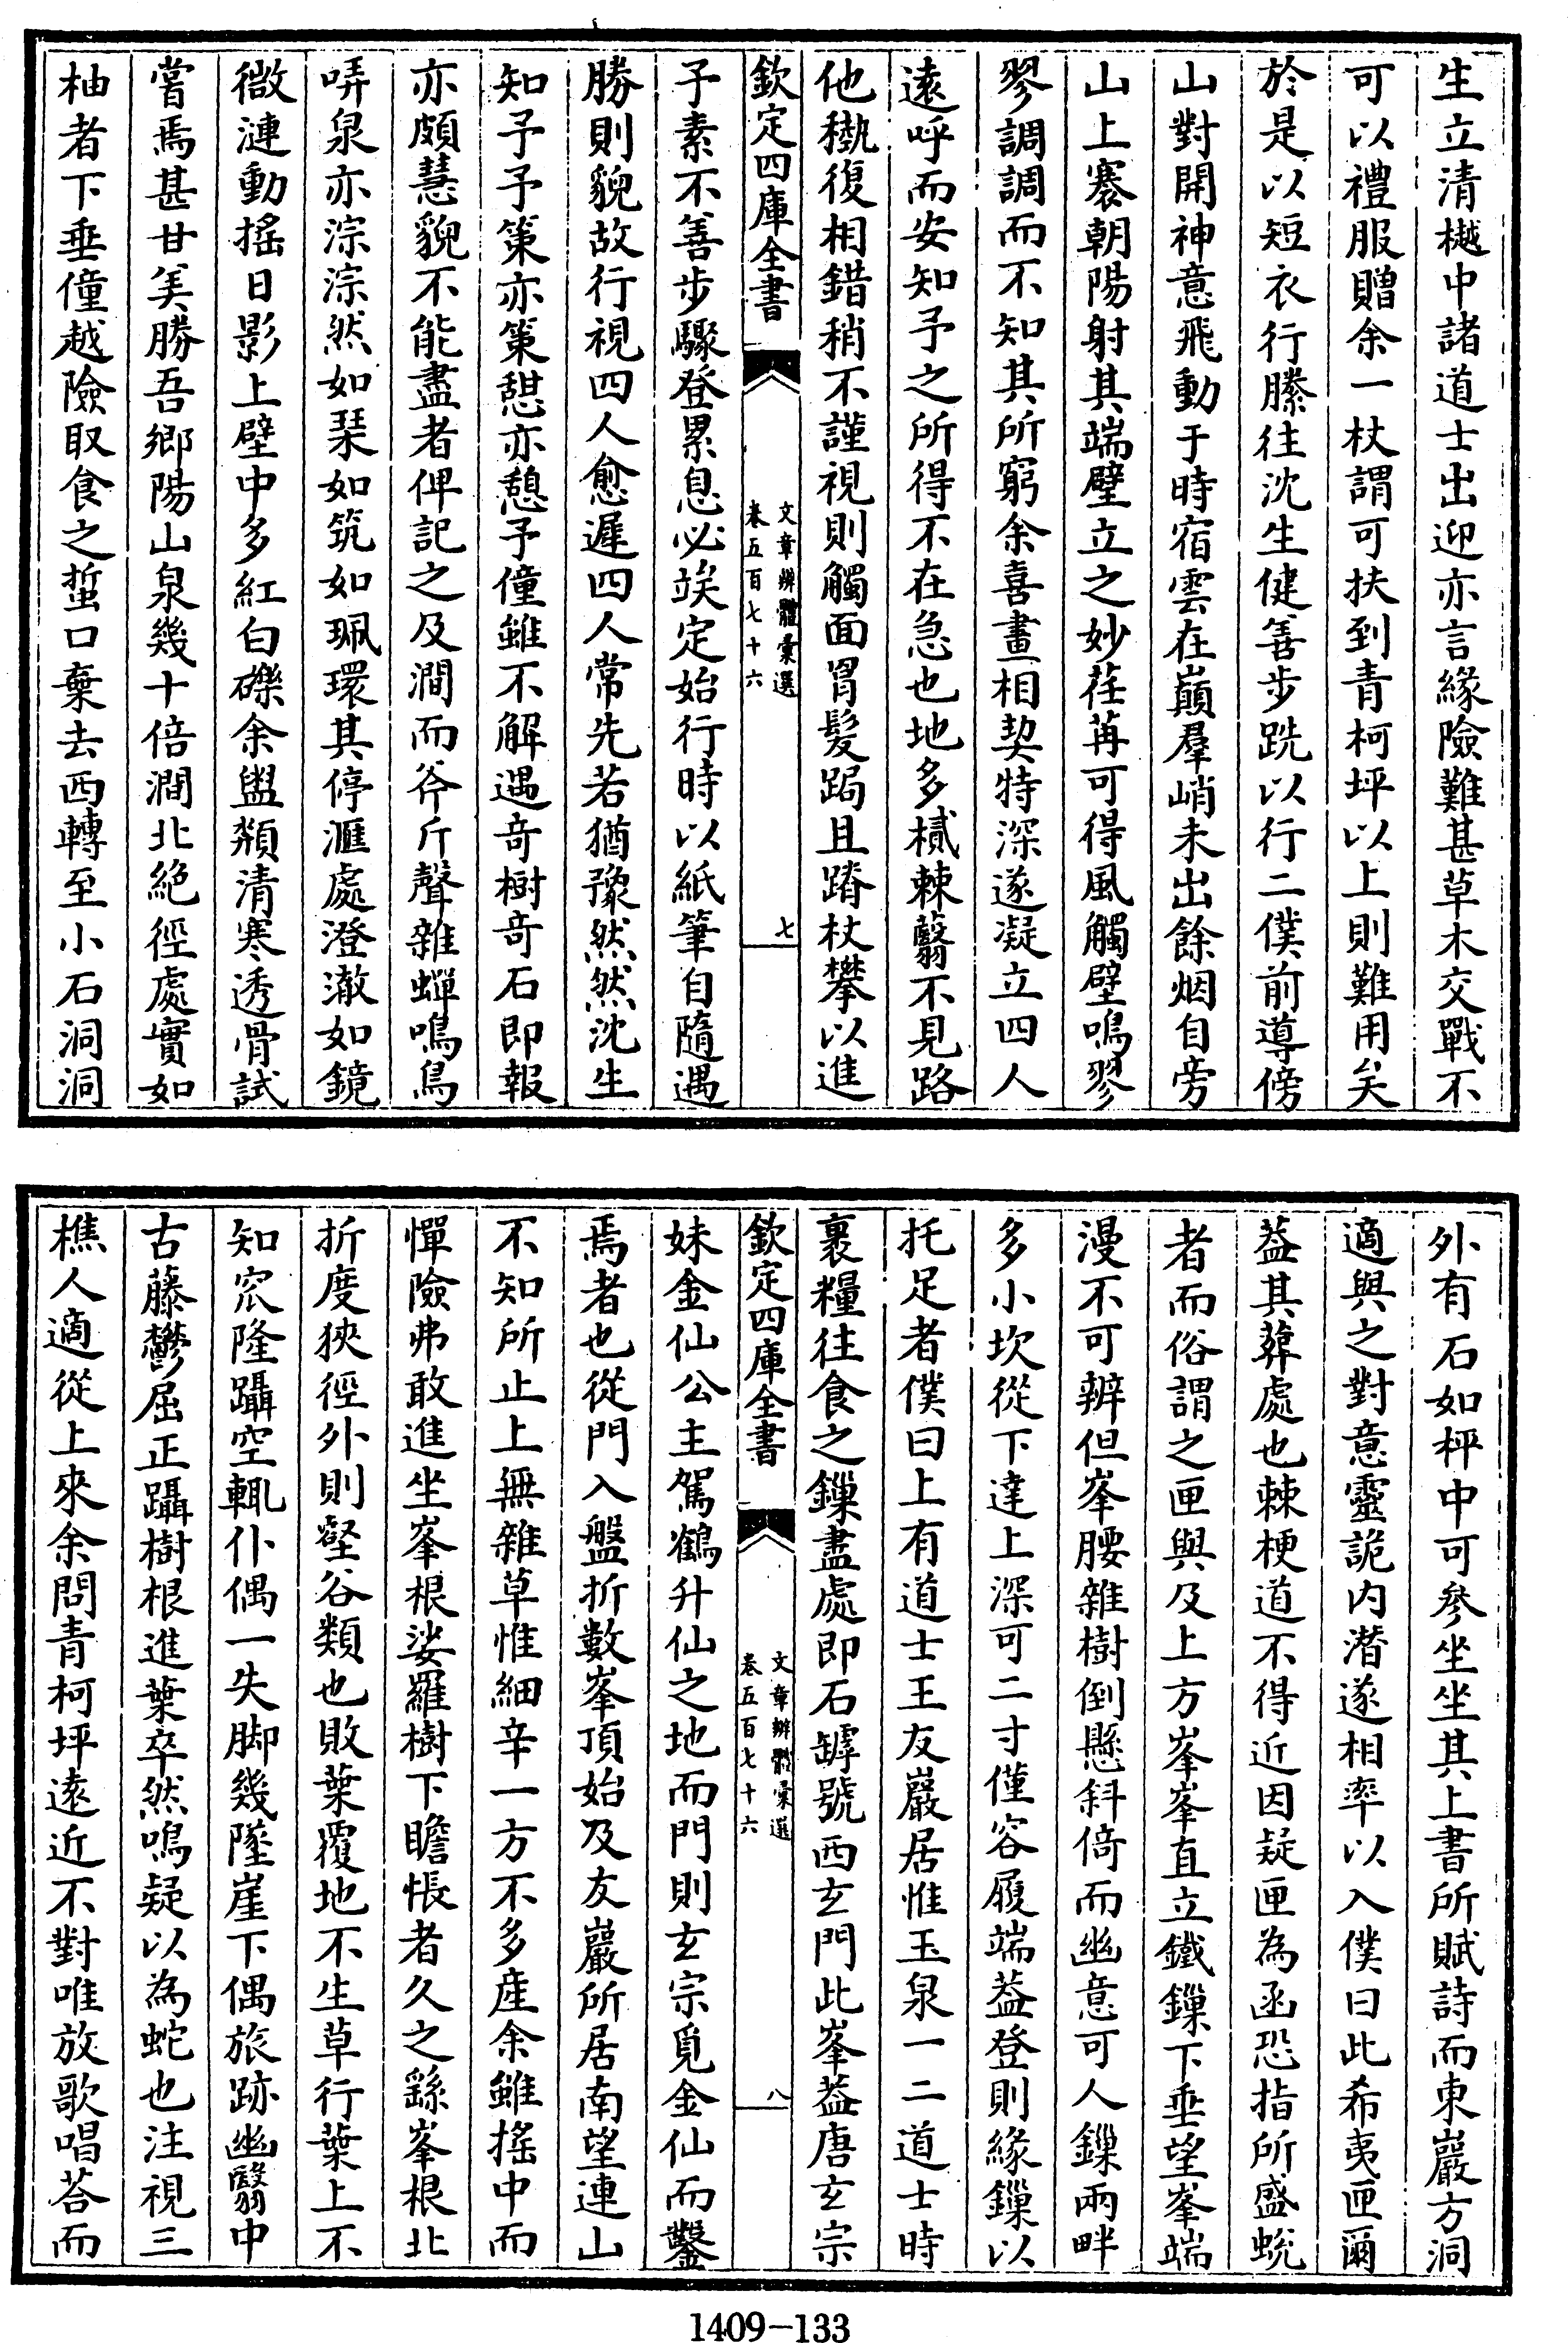 生立清樾中諸道士出迎亦言緣險難甚草木交戰不
可以禮服贈余一杖謂可扶到青柯坪以上則難用矣
於是以短衣行縢往沈生健善步跣以行二僕前導傍
山對開神意飛動于時宿雲在巔羣峭未出餘烟自旁
山上褰朝陽射其端壁立之妙荏苒可得風觸壁鳴翏
翏調調而不知其所窮余喜畫相契特深遂凝立四人
遠呼而安知予之所得不在急也地多樲棘翳不見路
他穊復相錯稍不謹視則觸面罥髮跼且蹐杖攀以進
欽定四庫全書
文章辨體彙選
卷五百七十六
七
予素不善步驟登累息必竢定始行時以紙筆自隨遇
勝則貌故行視四人愈遲四人常先若猶豫然然沈生
知予予策亦策憇亦憩予僮雖不解遇奇樹奇石即報
亦頗慧貌不能盡者俾記之及澗而斧斤聲雜蟬鳴鳥
哢泉亦淙淙然如琴如筑如珮環其停滙處澄澈如鏡
微漣動搖日影上壁中多紅白礫余盥頮清寒透骨試
嘗焉甚甘美勝吾鄉陽山泉幾十倍澗北絶徑處實如
柚者下垂僮越險取食之蜇口棄去西轉至小石洞洞
外有石如枰中可參坐坐其上書所賦詩而東巖方洞
適與之對意靈詭内潛遂相率以入僕曰此希夷匣爾
葢其葬處也棘梗道不得近因疑匣為函恐指所盛蛻
者而俗謂之匣與及上方峯峯直立鐵鏁下垂望峯端
漫不可辨但峯腰雜樹倒懸斜倚而幽意可人鏁兩畔
多小坎從下達上深可二寸僅容履端葢登則緣鏁以
托足者僕曰上有道士王友巖居惟玉泉一二道士時
裹糧往食之鏁盡處即石罅號西玄門此峯葢唐玄宗
欽定四庫全書
文章辨體彙選
卷五百七十六
八
妹金仙公主駕鶴升仙之地而門則玄宗覓金仙而鑿
焉者也從門入盤折數峯頂始及友巖所居南望連山
不知所止上無雜草惟細辛一方不多産余雖搖中而
憚險弗敢進坐峯根娑羅樹下瞻悵者久之繇峯根北
折度狹徑外則壑谷類也敗葉覆地不生草行葉上不
知窊隆躡空輒仆偶一失脚幾墜崖下偶旅跡幽翳中
古藤鬱屈正躡樹根進葉卒然鳴疑以為蛇也注視三
樵人適從上來余問青柯坪遠近不對唯放歌唱荅而
1409-133